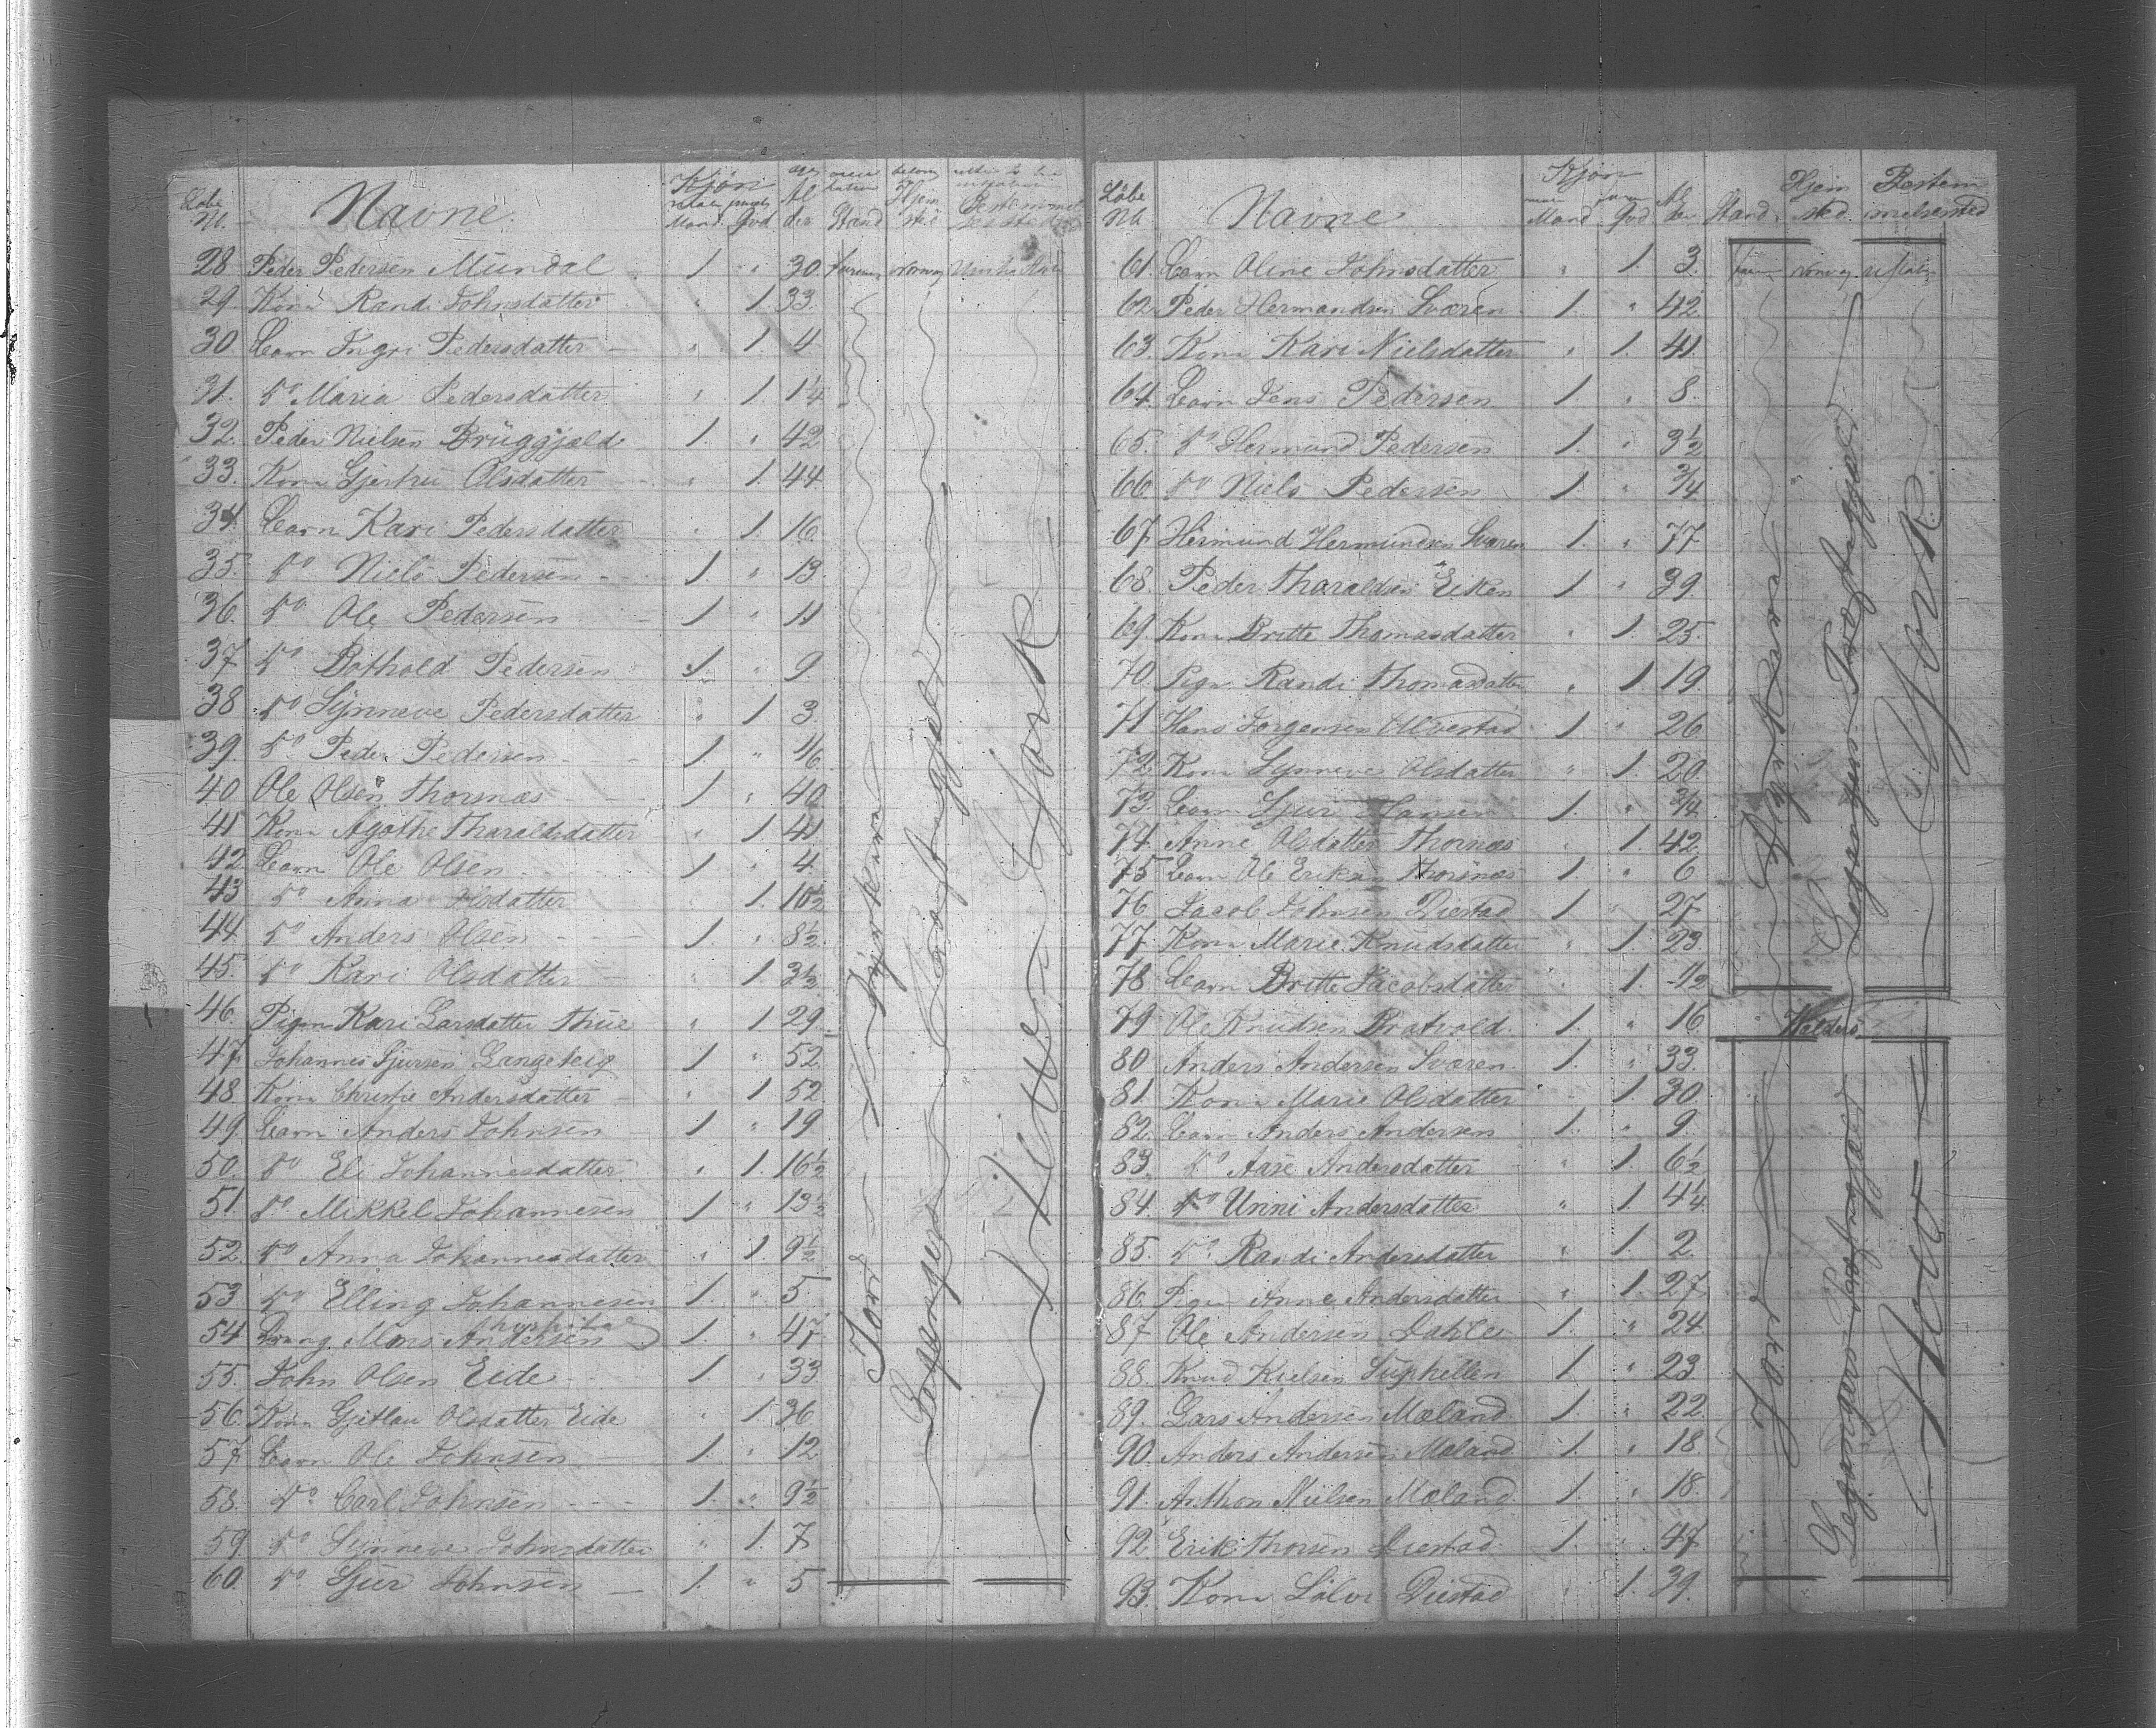 Løbe No. Navne Kjøn Mand Qvd Alder Stand Hjemsted Bestemmelsessted
28 Peder Pedersen Mundal 1 " 30 farmer Norway
29 Kone Randi Johnsdatter " 1 33
30 Barn Ingri Pedersdatter " 1 4
31 Do Maria Pedersdatter " 1 1/4
32 Peder Nielsen Brüggjæld 1 " 42
33 Kone Gjertru Olsdatter " 1 44
34 Barn Kari Pedersdatter " 1 16
35 Do Niels Pedersen 1 " 13
36 Do Ole Pedersen 1 " 11
37 Do Bothold Pedersen 1 " 9
38 Do Synneve Pedersdatter " 1 3
39 Do Peder Pedersen 1 " 1/6
40 Ole Olsen Thorsnæs 1 " 40
41 Kone Agothe Tharaldsdatter " 1 41
42 Barn Ole Olsen 1 " 4
43 Do Anna Olsdatter " 1 10½
44 Do Anders Olsen 1 " 8½
45 Do Kari Olsdatter " 1 3½
46 Pigen Kari Larsdatter Thue " 1 29
47 Johannes Sjursen Langeteig 1 " 52
48 Kone Christie Andersdatter " 1 52
49 Barn Anders Johnsen 1 " 19
50 Do Eli Johannesdatter " 1 16½
51 Do Mikkel Johannesen 1 " 13½
52 Do Anna Johannesdatter " 1 9½
53 Do Elling Johannesen 1 " 5
54 Dreng Mons Andersen hospital 1 " 47
55 John Olsen Eide 1 " 33
56 Kone Gjetlau Olsdatter Eide " 1 36
57 Barn Ole Johnsen 1 " 12
58 Do Carl Johnsen 1 " 9½
59 Do Synneve Johnsdatter " 1 7
60 Do Sjur Johnsen 1 " 5
Løbe No. Navne Kjøn Mand Qvd Alder Stand Hjemsted Bestemmelsested
61 Barn Oline Johnsdatter " 1 3 Norway
62 Peder Hermandsen Sværen 1 " 42
63 Kone Kari Nielsdatter " 1 41
64 Barn Jens Pedersen 1 " 8
65 Do Hermund Pedersen 1 " 3½
66 Do Niels Pedersen 1 " 3/4
67 Hermund Hermundsen Sværen 1 " 77
68 Peder Tharaldsen Eiken 1 " 39
69 Kone Britte Thomasdatter " 1 25
70 Pigen Randi Thomasdatter " 1 19
71 Hans Jørgensen Ulvestad 1 " 26
72 Kone Synneve Olsdatter " 1 20
73 Barn Sjur Hansen 1 " 3/4
74 Anne Olsdatter Thorsnæs " 1 42
75 Barn Ole Eriksen Thorsnæs 1 " 6
76 Jacob Johnsen Distad 1 " 27
77 Kone Marie Knudsdatter " 1 23
78 Barn Britte Jacobsdatter " 1 1/2
79 Ole Knudsen Bratvold 1 " 16 Walders
80 Anders Andersen Sværen 1 " 33
81 Kone Marie Olsdatter " 1 30
82 Barn Anders Andersen 1 " 9
83 Do Aase Andersdatter " 1 6½
84 Do Unni Andersdatter " 1 4¼
85 Do Randi Andersdatter " 1 2
86 Pigen Anne Andersdatter " 1 27
87 Ole Andersen Dahle 1 " 24
88 Knud Nielsen Suphellen 1 " 23
89 Lars Andersen Mæland 1 " 22
90 Anders Andersen Mæland 1 " 18
91 Anthon Nielsen Mæland 1 " 18
92 Erik Thorsen Distad 1 " 47
93 Kone Sølvi Distad " 1 39
Leganger Præstegjeld
York